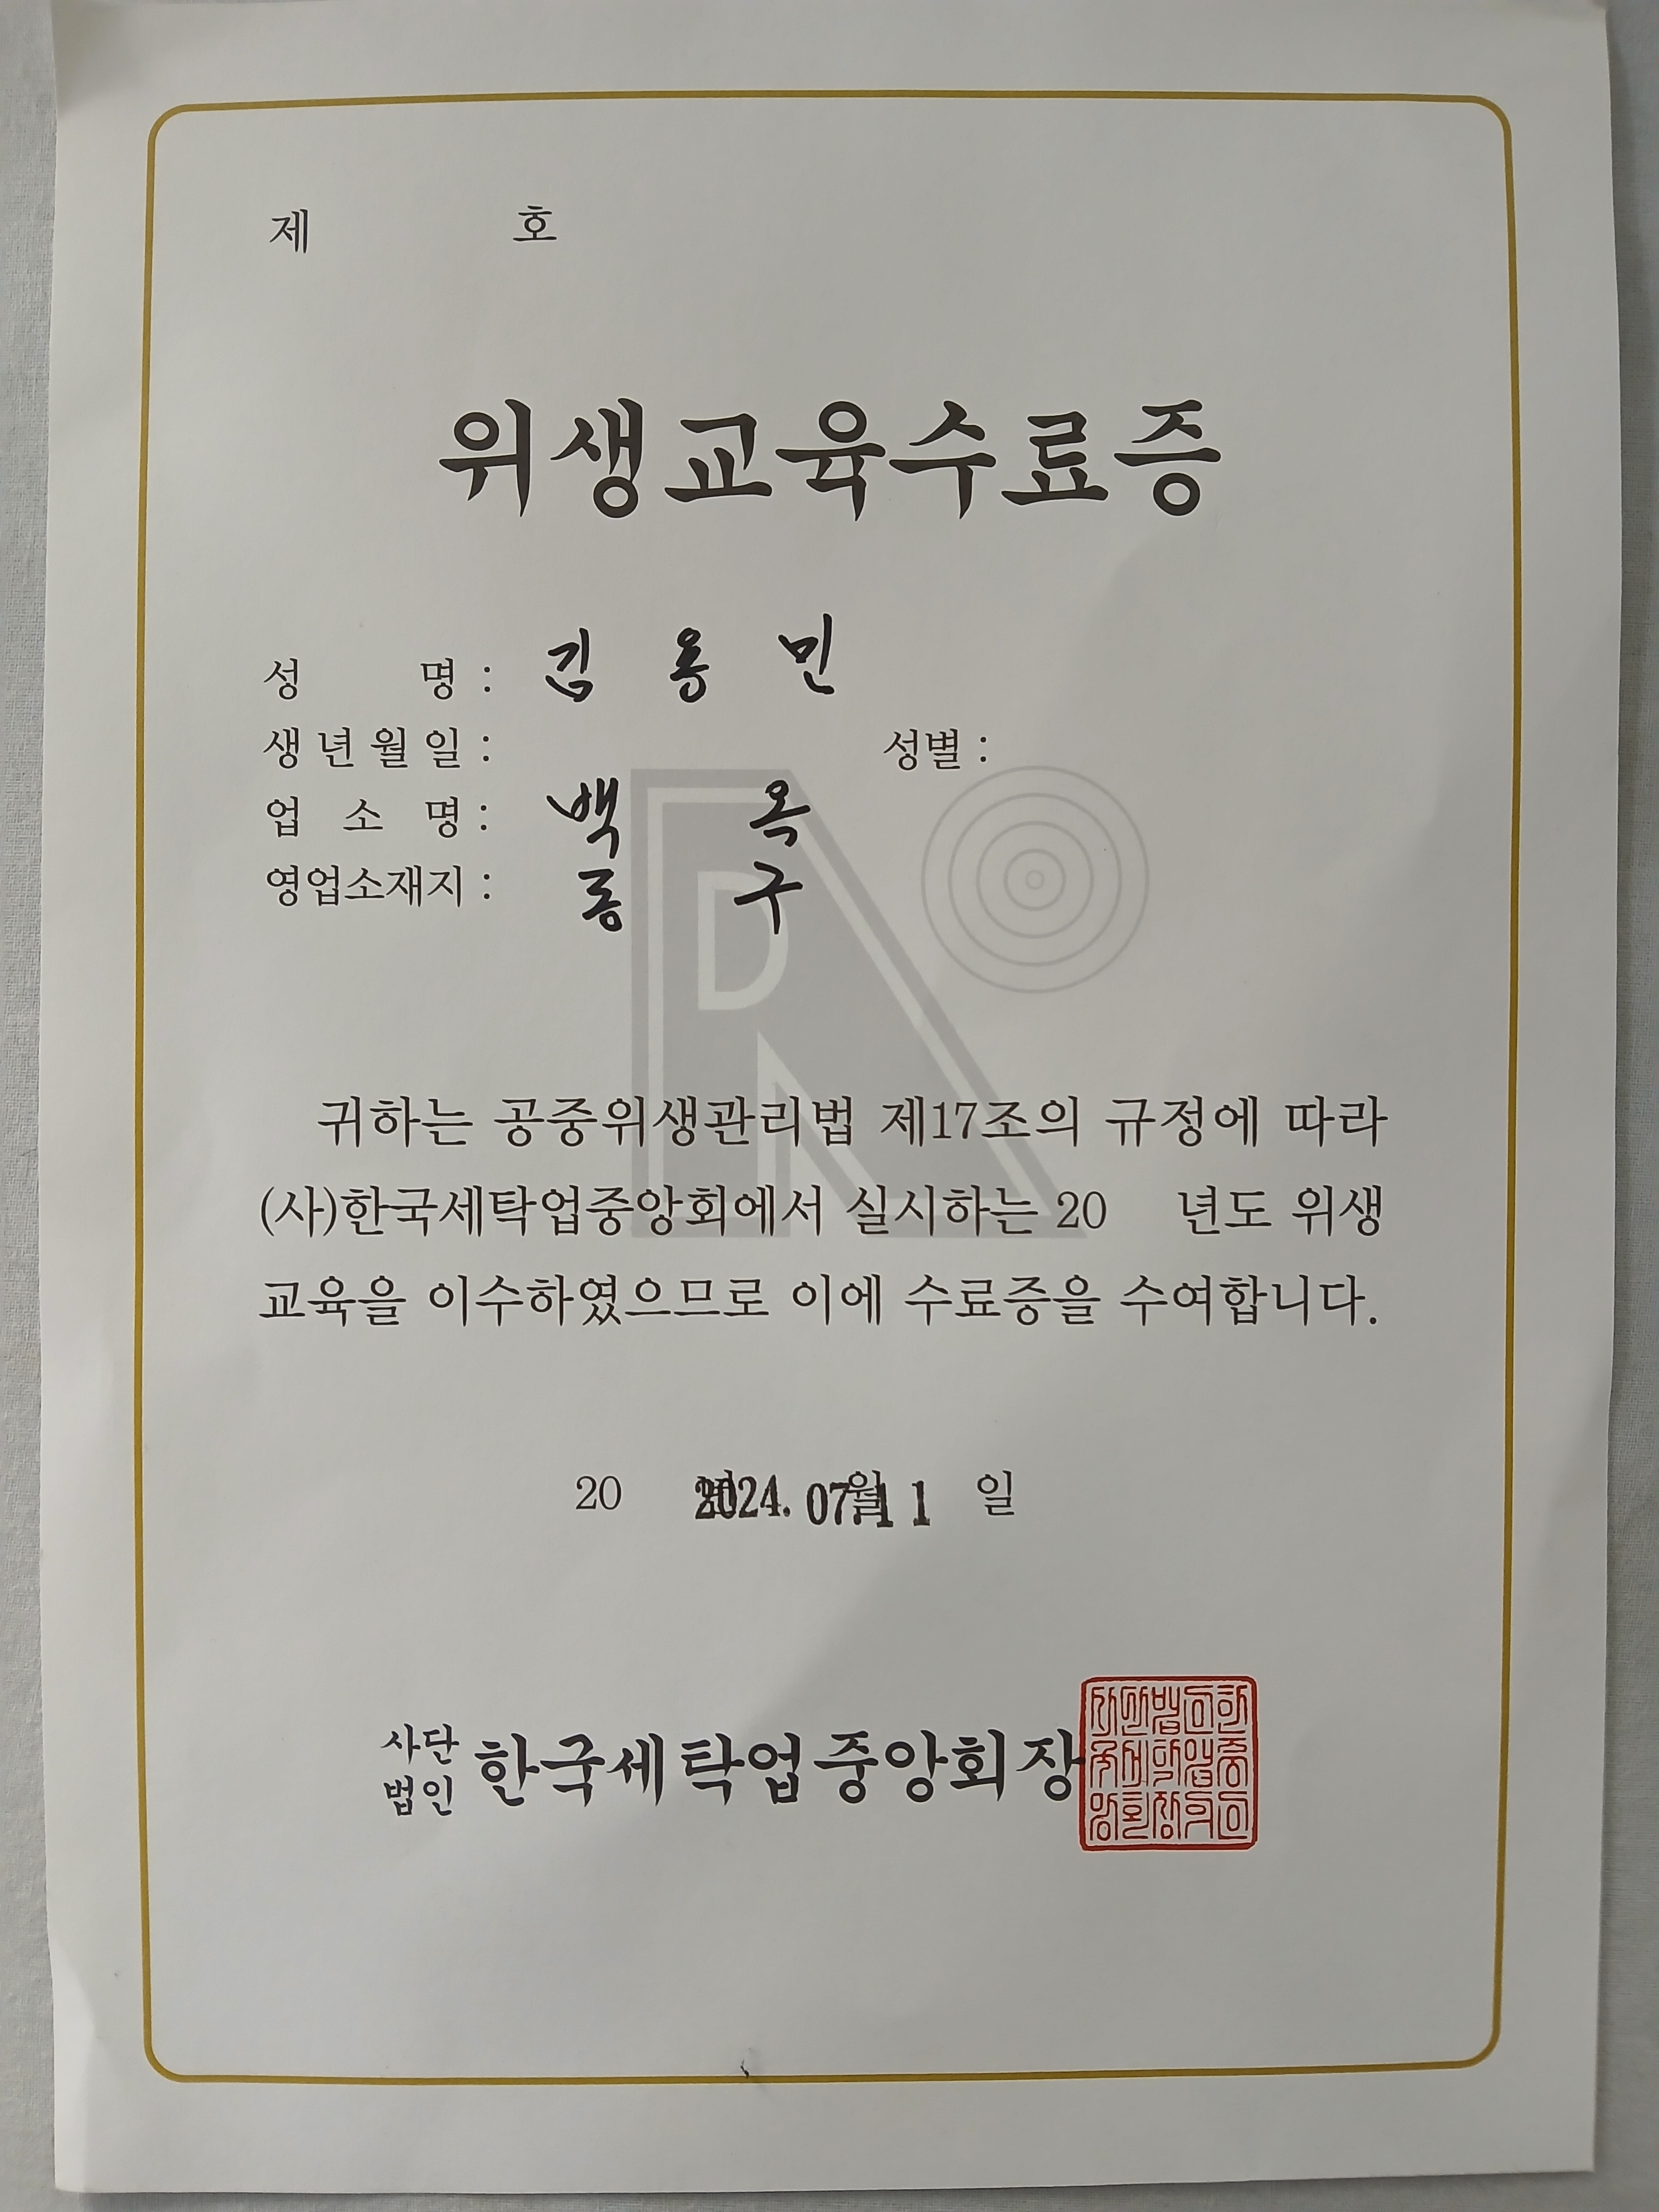 제 호
위생교육수료증
성 명 : 김 용 민
생년월일 : 성별 :
업 소 명 : 백 옥
영업소재지 : 동 구
귀하는 공중위생관리법 제17조의 규정에 따라
(사)한국세탁업중앙회에서 실시하는 20 년도 위생
교육을 이수하였으므로 이에 수료증을 수여합니다.
20 년 월 일
2024. 07. 11
사단법인 한국세탁업중앙회장